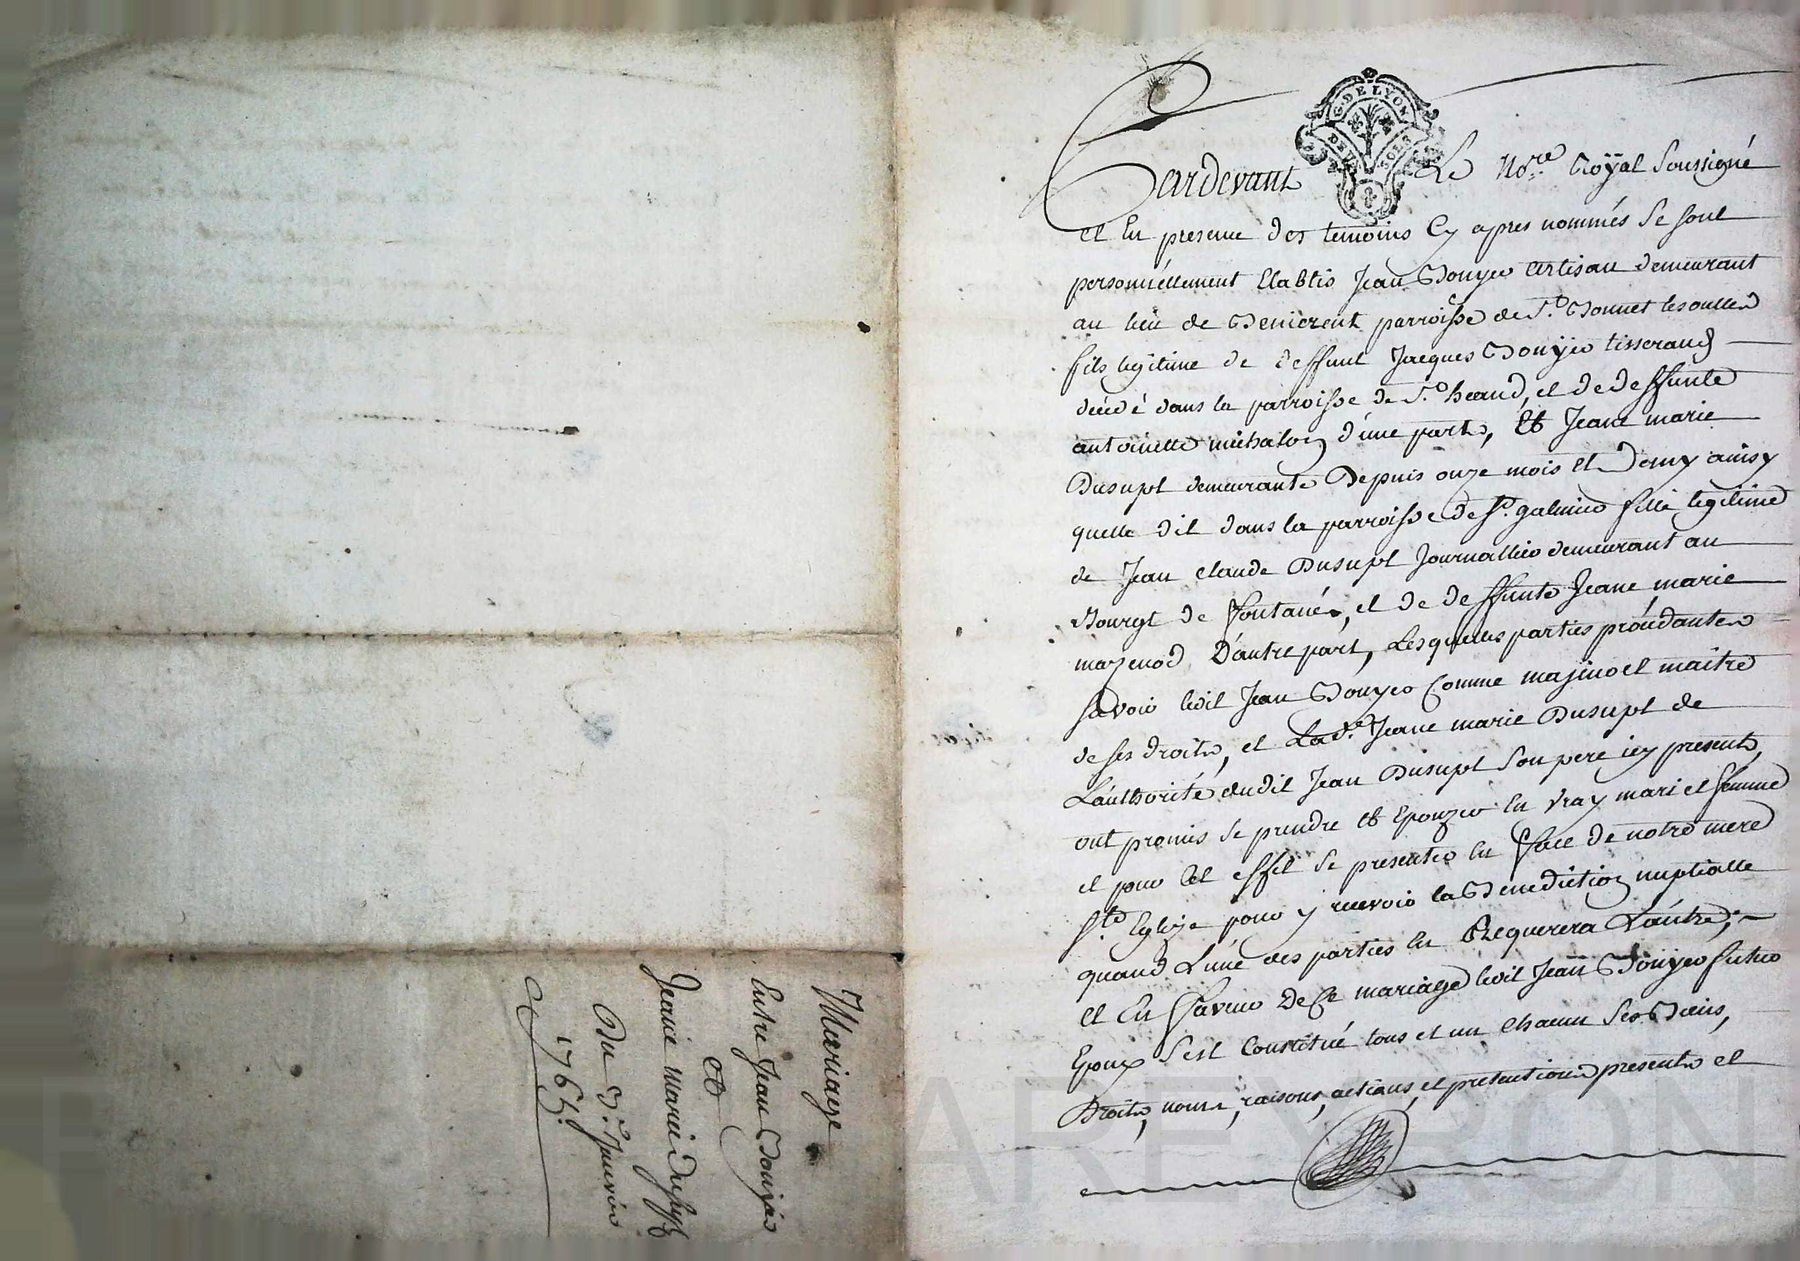 G. DE LYON
DEUX SOLS
Pardevant Le No.re Royal Soussigné
et En presence des temoins Cy apres nommés Se sont
personnéllement Etablis Jean Bonyer artisan demeurant
au lieu de parroisse de S.t Bonnet lesoulles
fils legitime de deffunt Jacques Bonyer tisserand
décédé dans la parroisse de S.t heand, et de deffunte
antoinette michalon d'une part, Et Jeane marie
Dusupt demeurante Depuis onze mois et Demy ainsy
quelle dit dans la parroisse de S.t galmier fille legitime
de Jean claude Dusupt Journallier demeurant au
Bourgt de fontanés, et de deffunte Jeane marie
mazenod D'autre part, Lesquelles parties procédantes
Savoir ledit Jean Bonyer Comme majeur et maitre
de ses droits, et Lad.e Jeane marie Dusupt de
L'authorité dudit Jean Dusupt Son pere icy present,
ont promis se prendre et Epouzer En vray mari et femme
et pour cet effet se presenter En face de notre mere
S.te Eglize pour y recevoir la Benediction nuptialle
quand L'une des parties En Requerera L'autre;
et En faveur De Ce mariage ledit Jean Bonyer futur
Epoux S'est Constitué tous et un chacun Ses Biens,
Droits, noms, raisons, actions, et pretentions presents et
Mariage
Entre Jean Bonyer
et
Jeane Marie Dusupt
Du 3.e Janvier
1765.
AREYRON